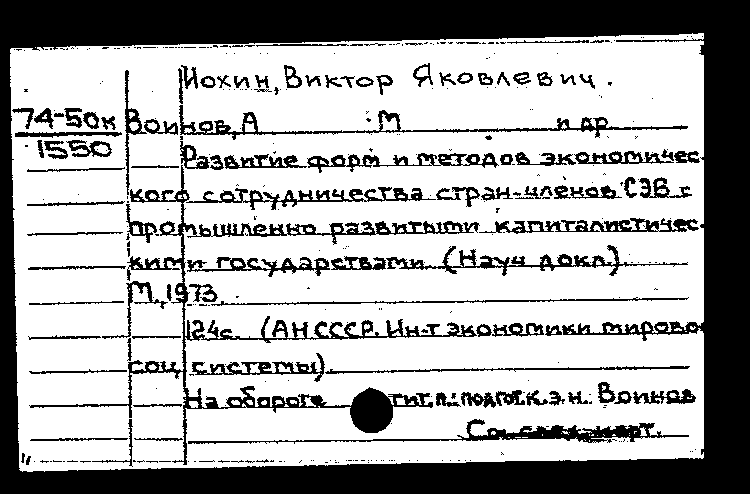 Иохин, Виктор Яковлевич.
74-50к Воинов, А М и др
1550
Развитие форм и методов экономичес-
кого сотрудничества стран-членов СЭВ с
промышленно развитыми капиталистичес-
кими государствами. (Науч докл).
М., 1973.
124с. (АН СССР. Ин-т экономики мирово
соц. системы).
На обороте тит. л.: подгот. к.э.н. Воинов
См. след. карт.